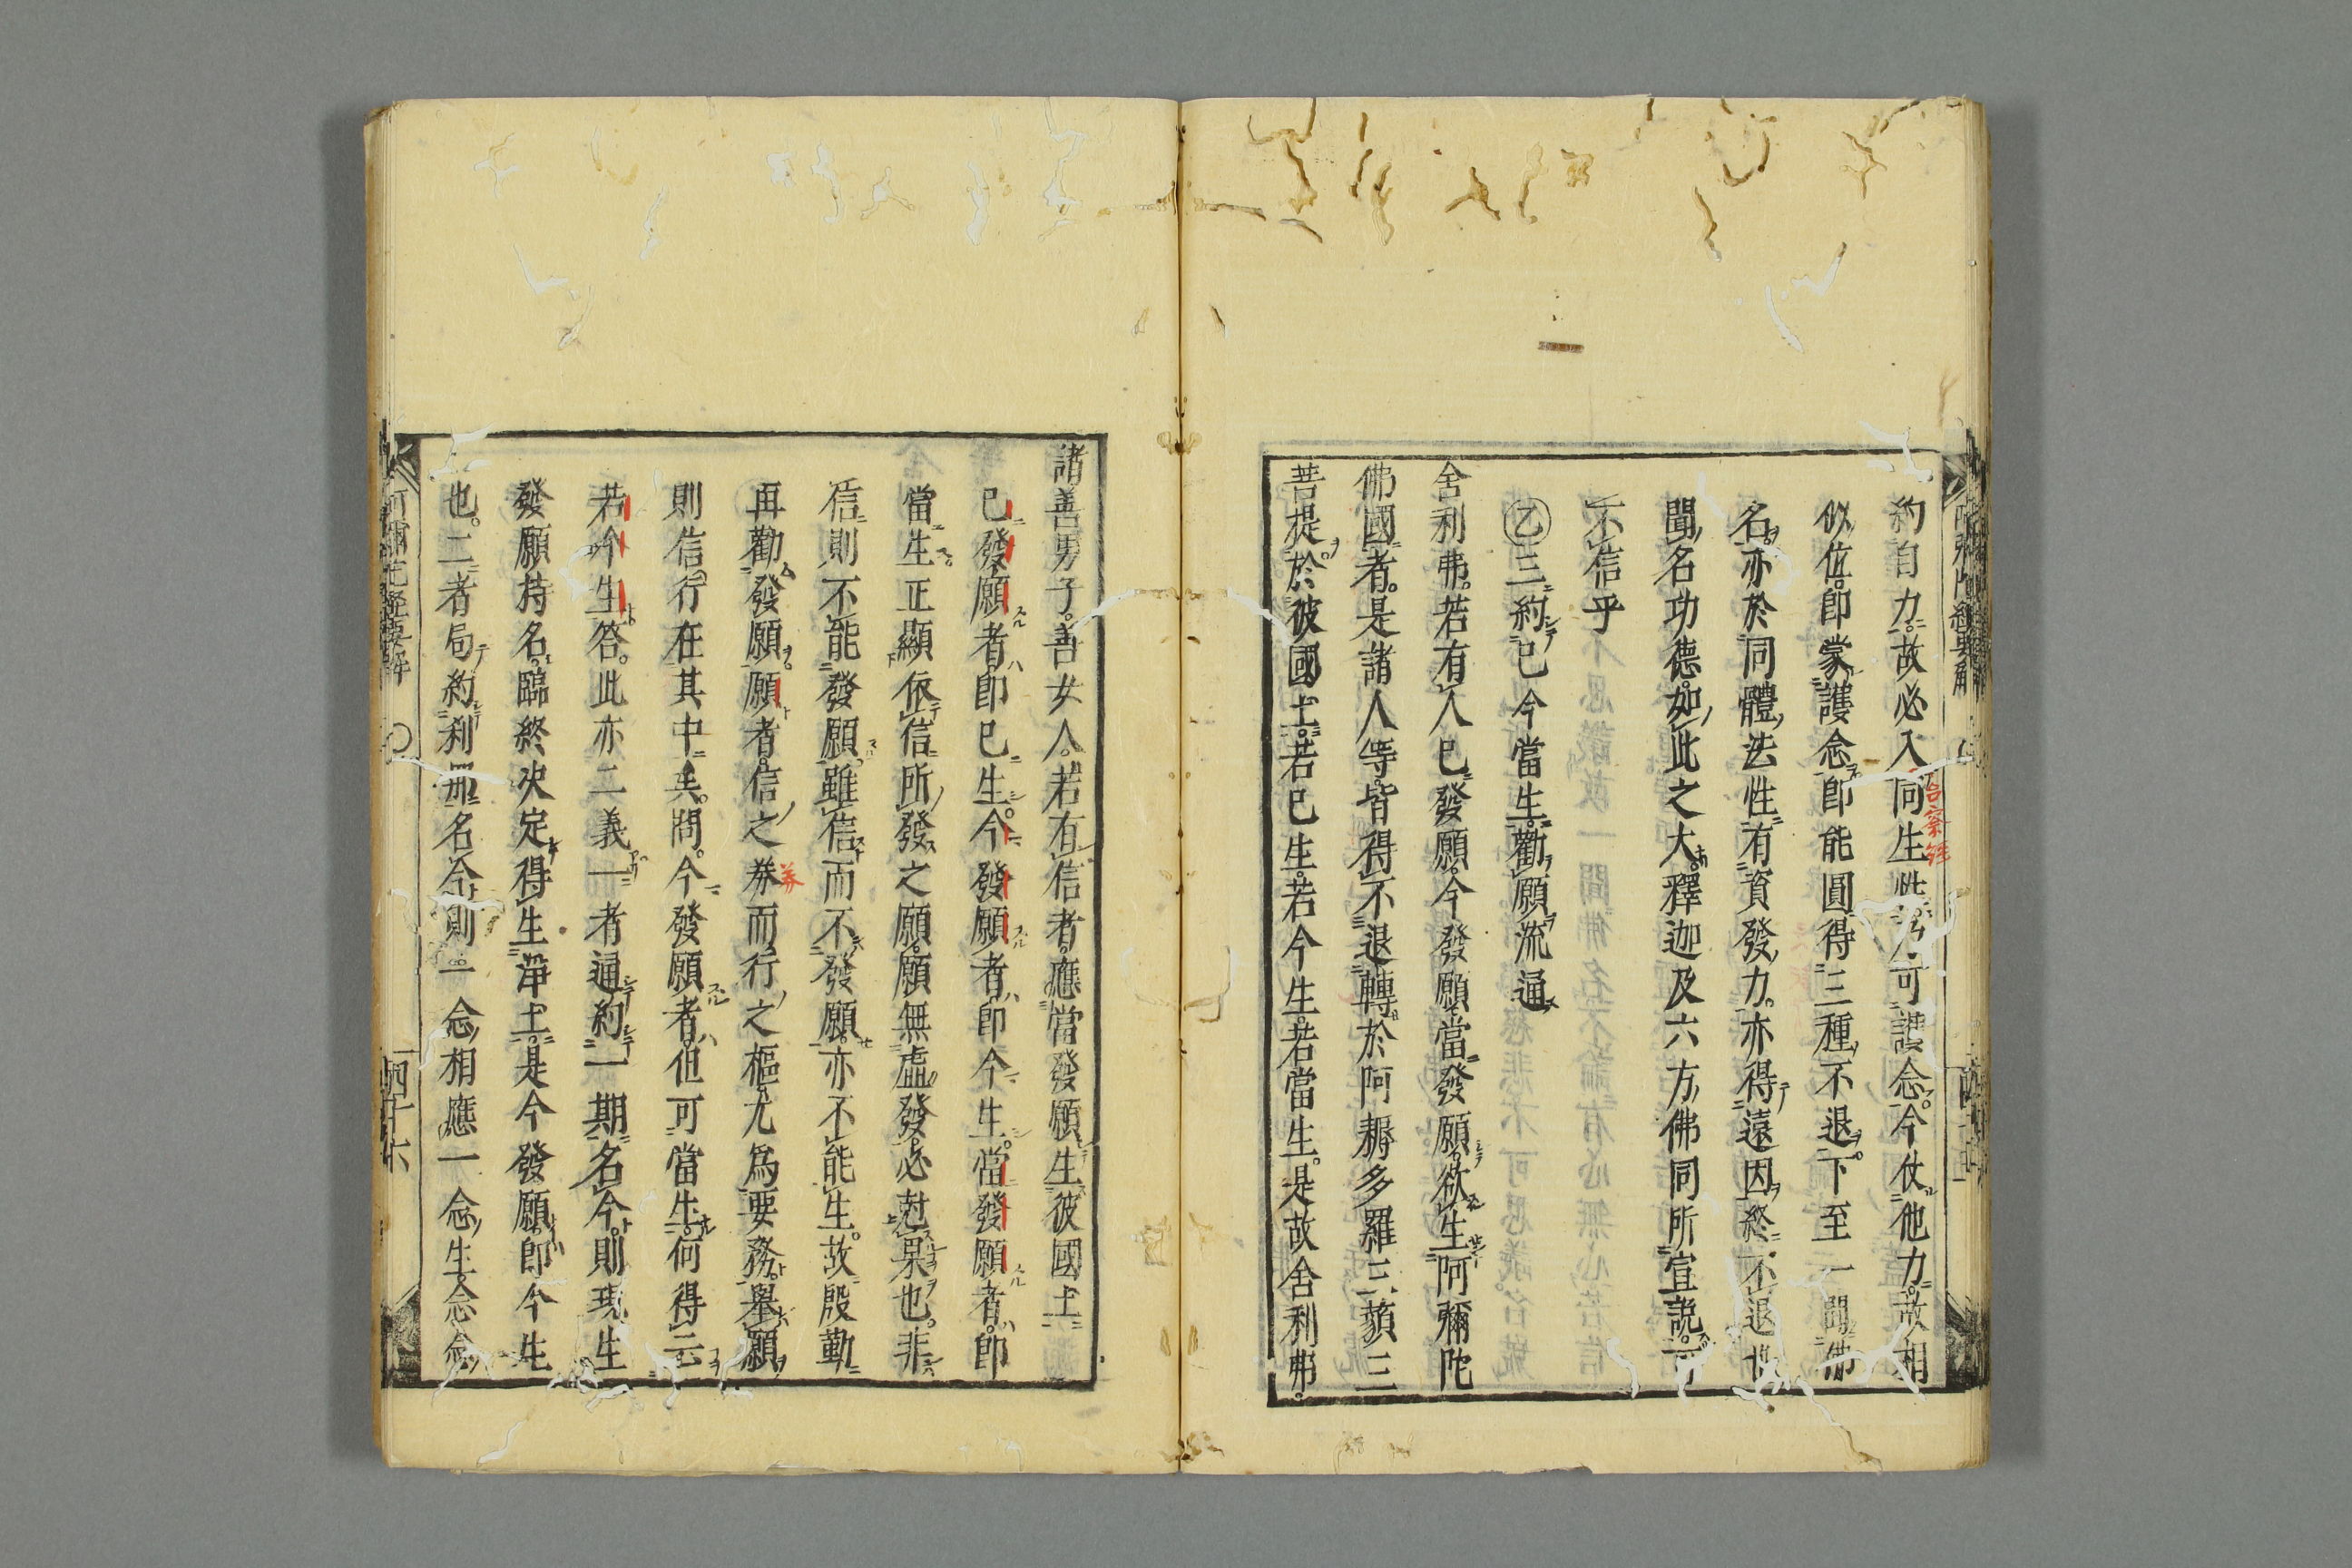 約自力。故必入同生性。乃可護念。今仗他力。故相
似位。卽蒙護念。卽能圓得三種不退。下至一聞佛
名。亦於同體法性有資發力。亦得遠因終不退也
聞名功德如此之大。釋迦及六方佛同所宣說。可
不信乎
乙三約已今當生勸願流通
舍利弗。若有人已發願。今發願。當發願。欲生阿彌陀
佛國者。是諸人等。皆得不退轉於阿耨多羅三藐三
菩提。於彼國土。若已生。若今生。若當生。是故舍利弗。
諸善男子。善女人。若有信者。應當發願生彼國土
已發願者。卽已生。今發願者。卽今生。當發願者。卽
當生。正顯依信所發之願。願無虛發。必尅果也。非
信則不能發願。雖信而不發願。亦不能生。故殷勤
再勸發願。願者。信之券而行之樞。尤爲要務。舉願
則信行在其中矣。問。今發願者。但可當生。何得云
若今生。答。此亦二義。一者通約一期名今。則現生
發願持名。臨終決定得生淨土。是今發願。卽今生
也。二者局約刹那名今。則一念相應一念生。念念
阿彌陀經要解
四十六